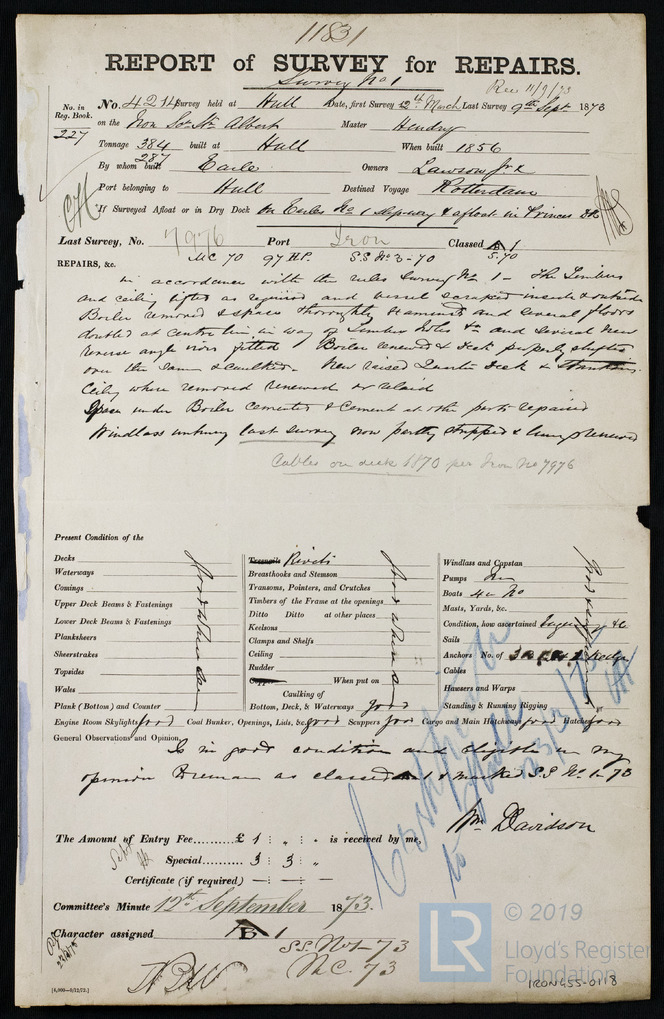 11831
REPORT of SURVEY for REPAIRS.
Survey No 1
Rec 11/9/73
No. in Reg. Book. 227
No. 4214 Survey held at Hull Date, first Survey 12th March Last Survey 9th Sept 1873
on the Iron Scr Str Albert Master Hendry
Tonnage 384 built at Hull When built 1856
287
By whom built Earle Owners Lawson Jr &
Port belonging to Hull Destined Voyage Rotterdam
If Surveyed Afloat or in Dry Dock On Earles No 1 Slipway & afloat in Princes Dk
Last Survey, No. 7976 Port Iron Classed A 1
5.70
MC 70 97 HP. S.S No 3-70
REPAIRS, &c.
In accordance with the rules Survey No 1 - The Limbers
and ceiling lifted as required and vessel scraped inside & outside
Boiler removed & space thoroughly examined and several floors
doubled at centre line in way of Limber holes &c and several new
reverse angle irons fitted Boiler renewed & Deck properly shifted
over the same & caulked. New raised Quarter Deck &
Ceiling where removed renewed or relaid
Space under Boiler cemented & Cement at other parts repaired
Windlass last survey now partly stripped & renewed
Cables on deck 1870 per Iron No 7976
Present Condition of the
Decks
Waterways
Comings
Upper Deck Beams & Fastenings
Lower Deck Beams & Fastenings
Planksheers
Sheerstrakes
Topsides
Wales
Plank (Bottom) and Counter
Good where seen
Treenails Rivets
Breasthooks and Stemson
Transoms, Pointers, and Crutches
Timbers of the Frame at the openings
Ditto Ditto at other places
Keelsons
Clamps and Shelfs
Ceiling
Rudder
Copper When put on
Caulking of
Bottom, Deck, & Waterways Good
Good where seen
Windlass and Capstan
Pumps
Boats
Masts, Yards, &c.
Condition, how ascertained
Sails
Anchors No. of
Cables
Hawsers and Warps
Standing & Running Rigging
Engine Room Skylights good Coal Bunker, Openings, Lids, &c. good Scuppers good Cargo and Main Hatchways good Hatches good
General Observations and Opinion,
Is in good condition and eligible in my
opinion to remain as classed A 1 & marked S.S No 1-73
Wm Davidson
The Amount of Entry Fee......... £ 1 : „ : „ is received by me,
Special......... 3 : 3 : „
Certificate (if required) — : — : —
Committee's Minute 12th September 1873.
Character assigned A B 1
S.S. No 1-73
M.C. 73
[6,000—9/12/72.]
LR © 2019
Lloyd's Register
Foundation
IRON455-0118